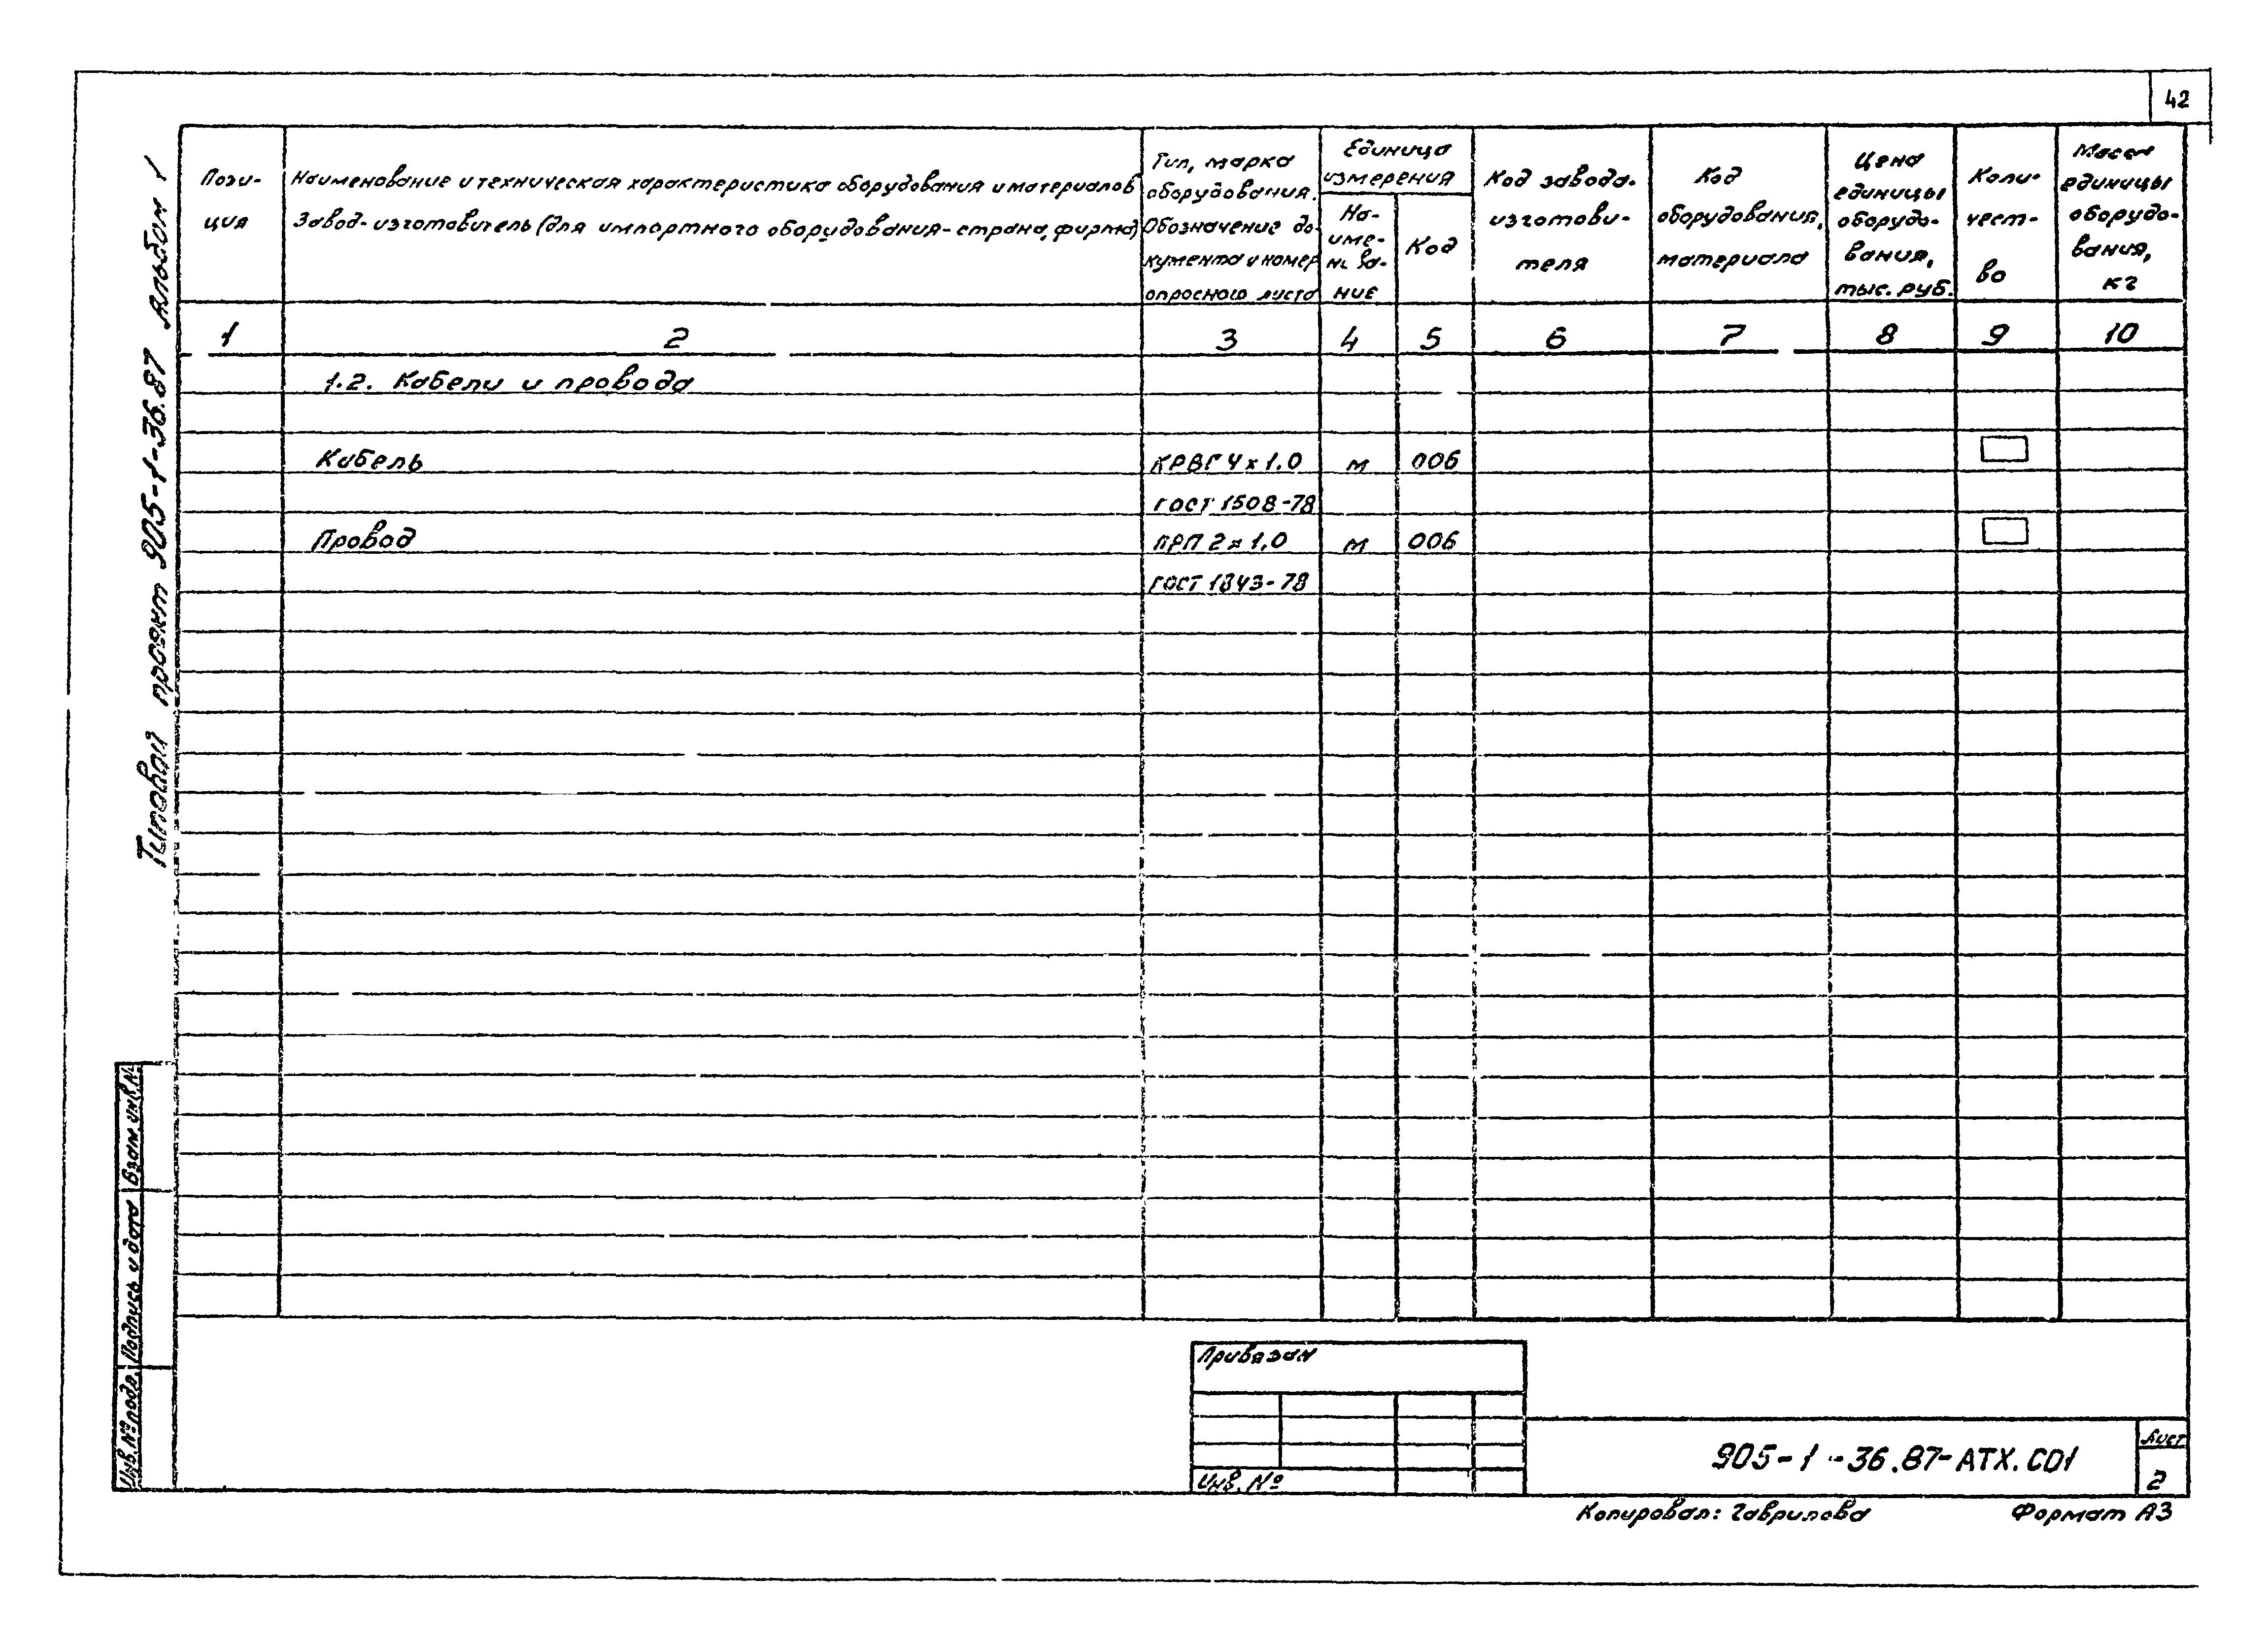 42
Типовой проект 905-1-36.87 Альбом 1
Пози-
ция
Наименование и техническая характеристика оборудования и материалов
Завод-изготовитель (для импортного оборудования-страна, фирма)
Тип, марка
оборудования.
Обозначение до-
кумента и номер
опросного листа
Единица
измерения
На-
име-
нова-
ние
Код
Код завода-
изготови-
теля
Код
оборудования,
материала
Цена
единицы
оборудо-
вания,
тыс. руб.
Коли-
чест-
во
Масса
единицы
оборудо-
вания,
кг
1 2 3 4 5 6 7 8 9 10
1.2. Кабели и провода
Кабель КРВГ 4х1.0 м 006
ГОСТ 1508-78
Провод ПРП 2х1,0 м 006
ГОСТ 1843-78
Взам. инв. №
Подпись и дата
Инв. № подл.
Привязан
Инв. №
905-1-36.87-АТХ.СО1
Лист
2
Копировал: Гаврилова Формат А3